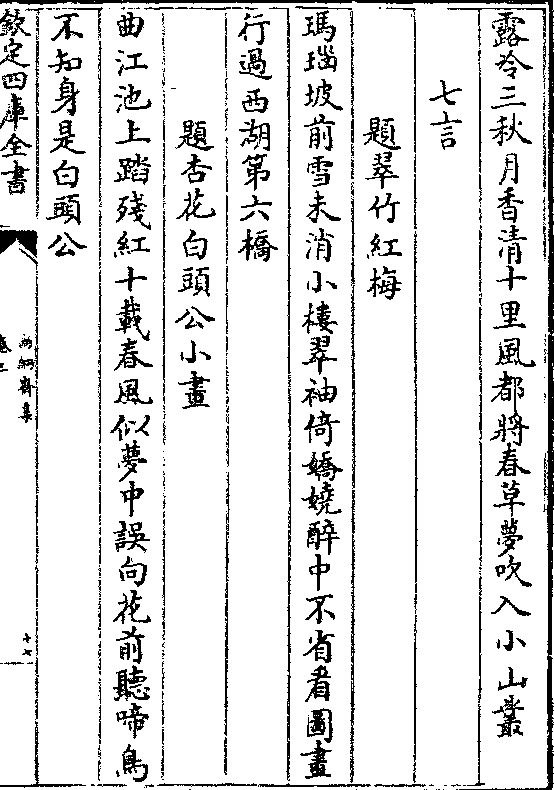 露冷三秋月香清十里風都將春草夢吹入小山叢
七言
題翠竹紅梅
瑪瑙坡前雪未消小樓翠袖倚嬌嬈醉中不省看圖畫
行過西湖第六橋
題杏花白頭公小畫
曲江池上踏殘紅十載春風似夢中誤向花前聽啼鳥
不知身是白頭公
欽定四庫全書